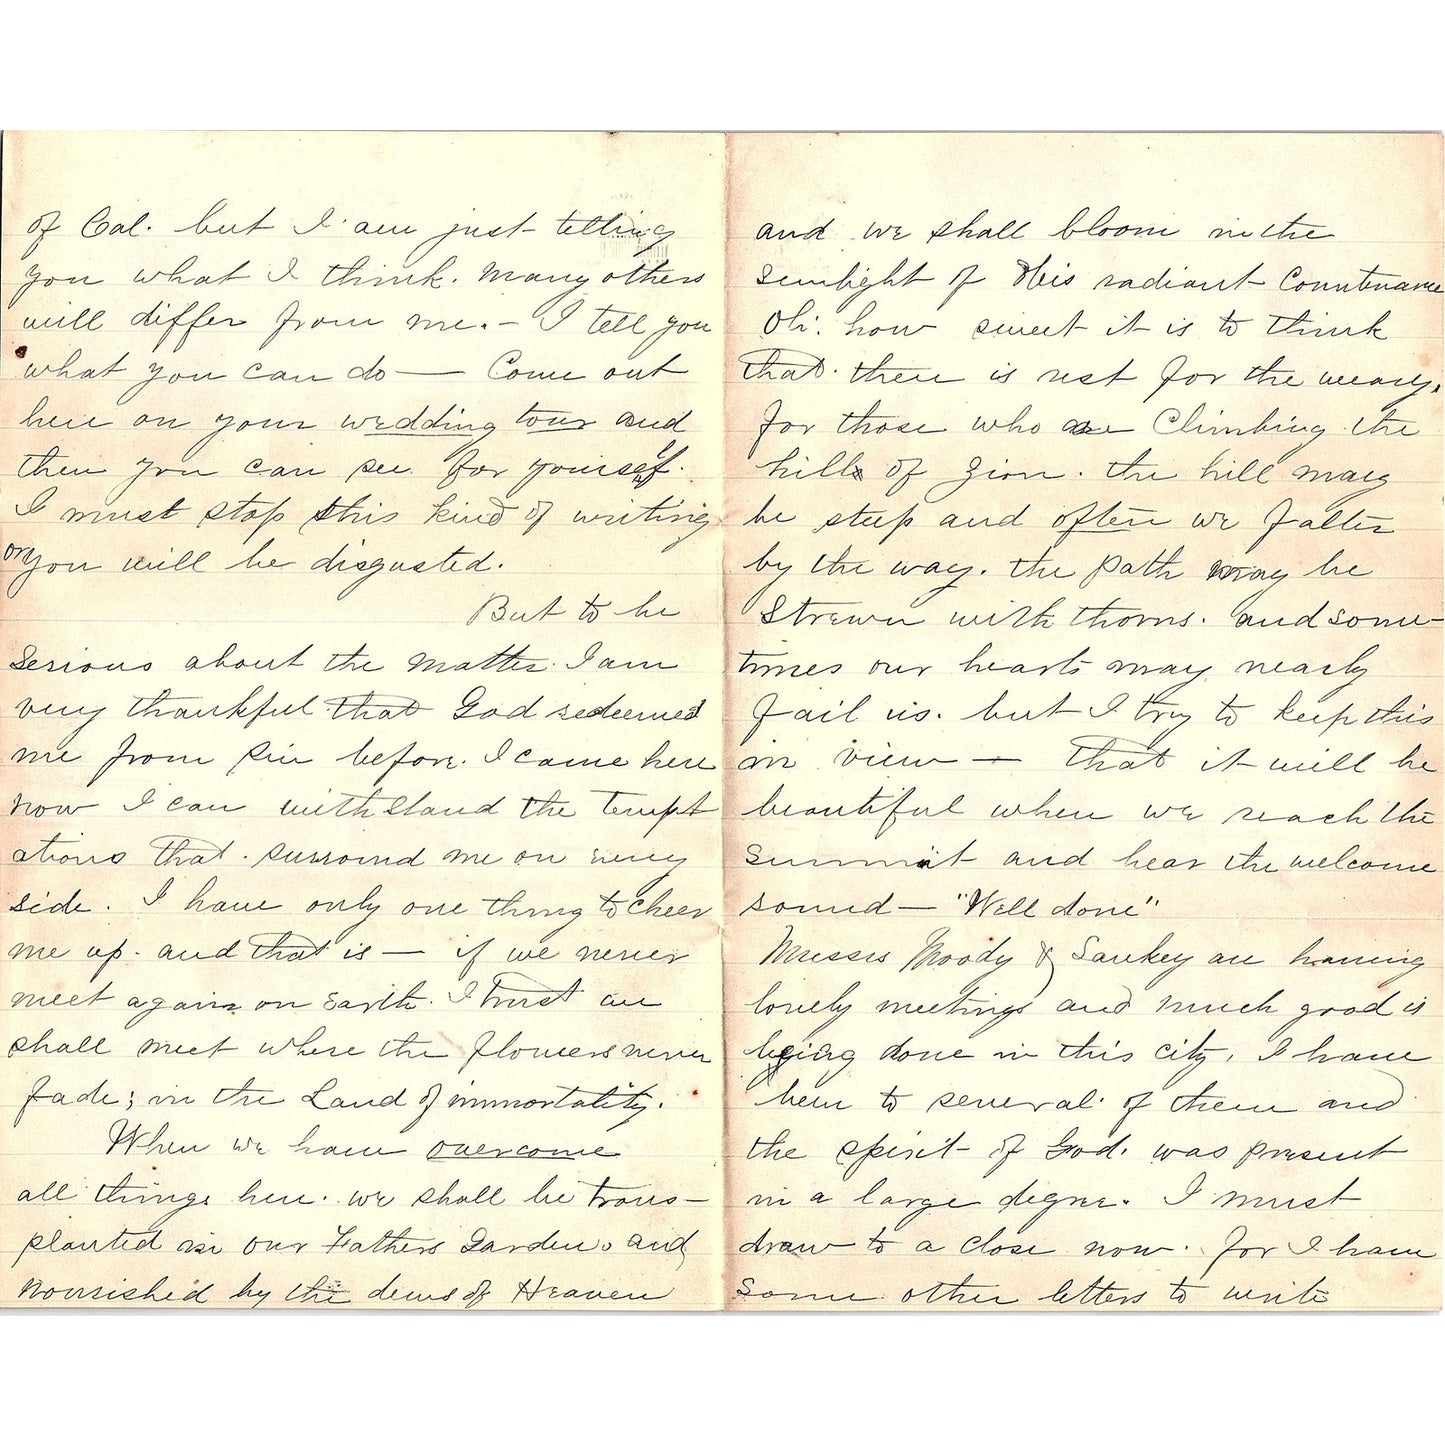 of Cal. but I am just telling
you what I think. Many others
will differ from me. - I tell you
what you can do — Come out
here on your wedding tour and
then you can see for yourself.
I must stop this kind of writing
or you will be disgusted.
But to be
serious about the matter. I am
very thankful that God redeemed
me from sin before. I came here
now I can withstand the tempt
ations that surround me on every
side. I have only one thing to cheer
me up. and that is — if we never
meet again on Earth. I trust we
shall meet where the flowers never
fade; in the Land of immortality.
When we have overcome
all things here. we shall be trans-
planted in our Fathers Garden. and
nourished by the dews of Heaven
and we shall bloom in the
sunlight of His radiant Countenance
Oh. how sweet it is to think
that there is rest for the weary.
for those who are Climbing the
hills of Zion. the hill may
be steep and often we falter
by the way. the path may be
strewn with thorns. and some-
times our hearts may nearly
fail us. but I try to keep this
in view — that it will be
beautiful when we reach the
summit and hear the welcome
sound — "Well done"
Messrs Moody & Sankey are having
lovely meetings and much good is
being done in this city. I have
been to several of them and
the spirit of God. was present
in a large degree. I must
draw to a close now. for I have
some other letters to write